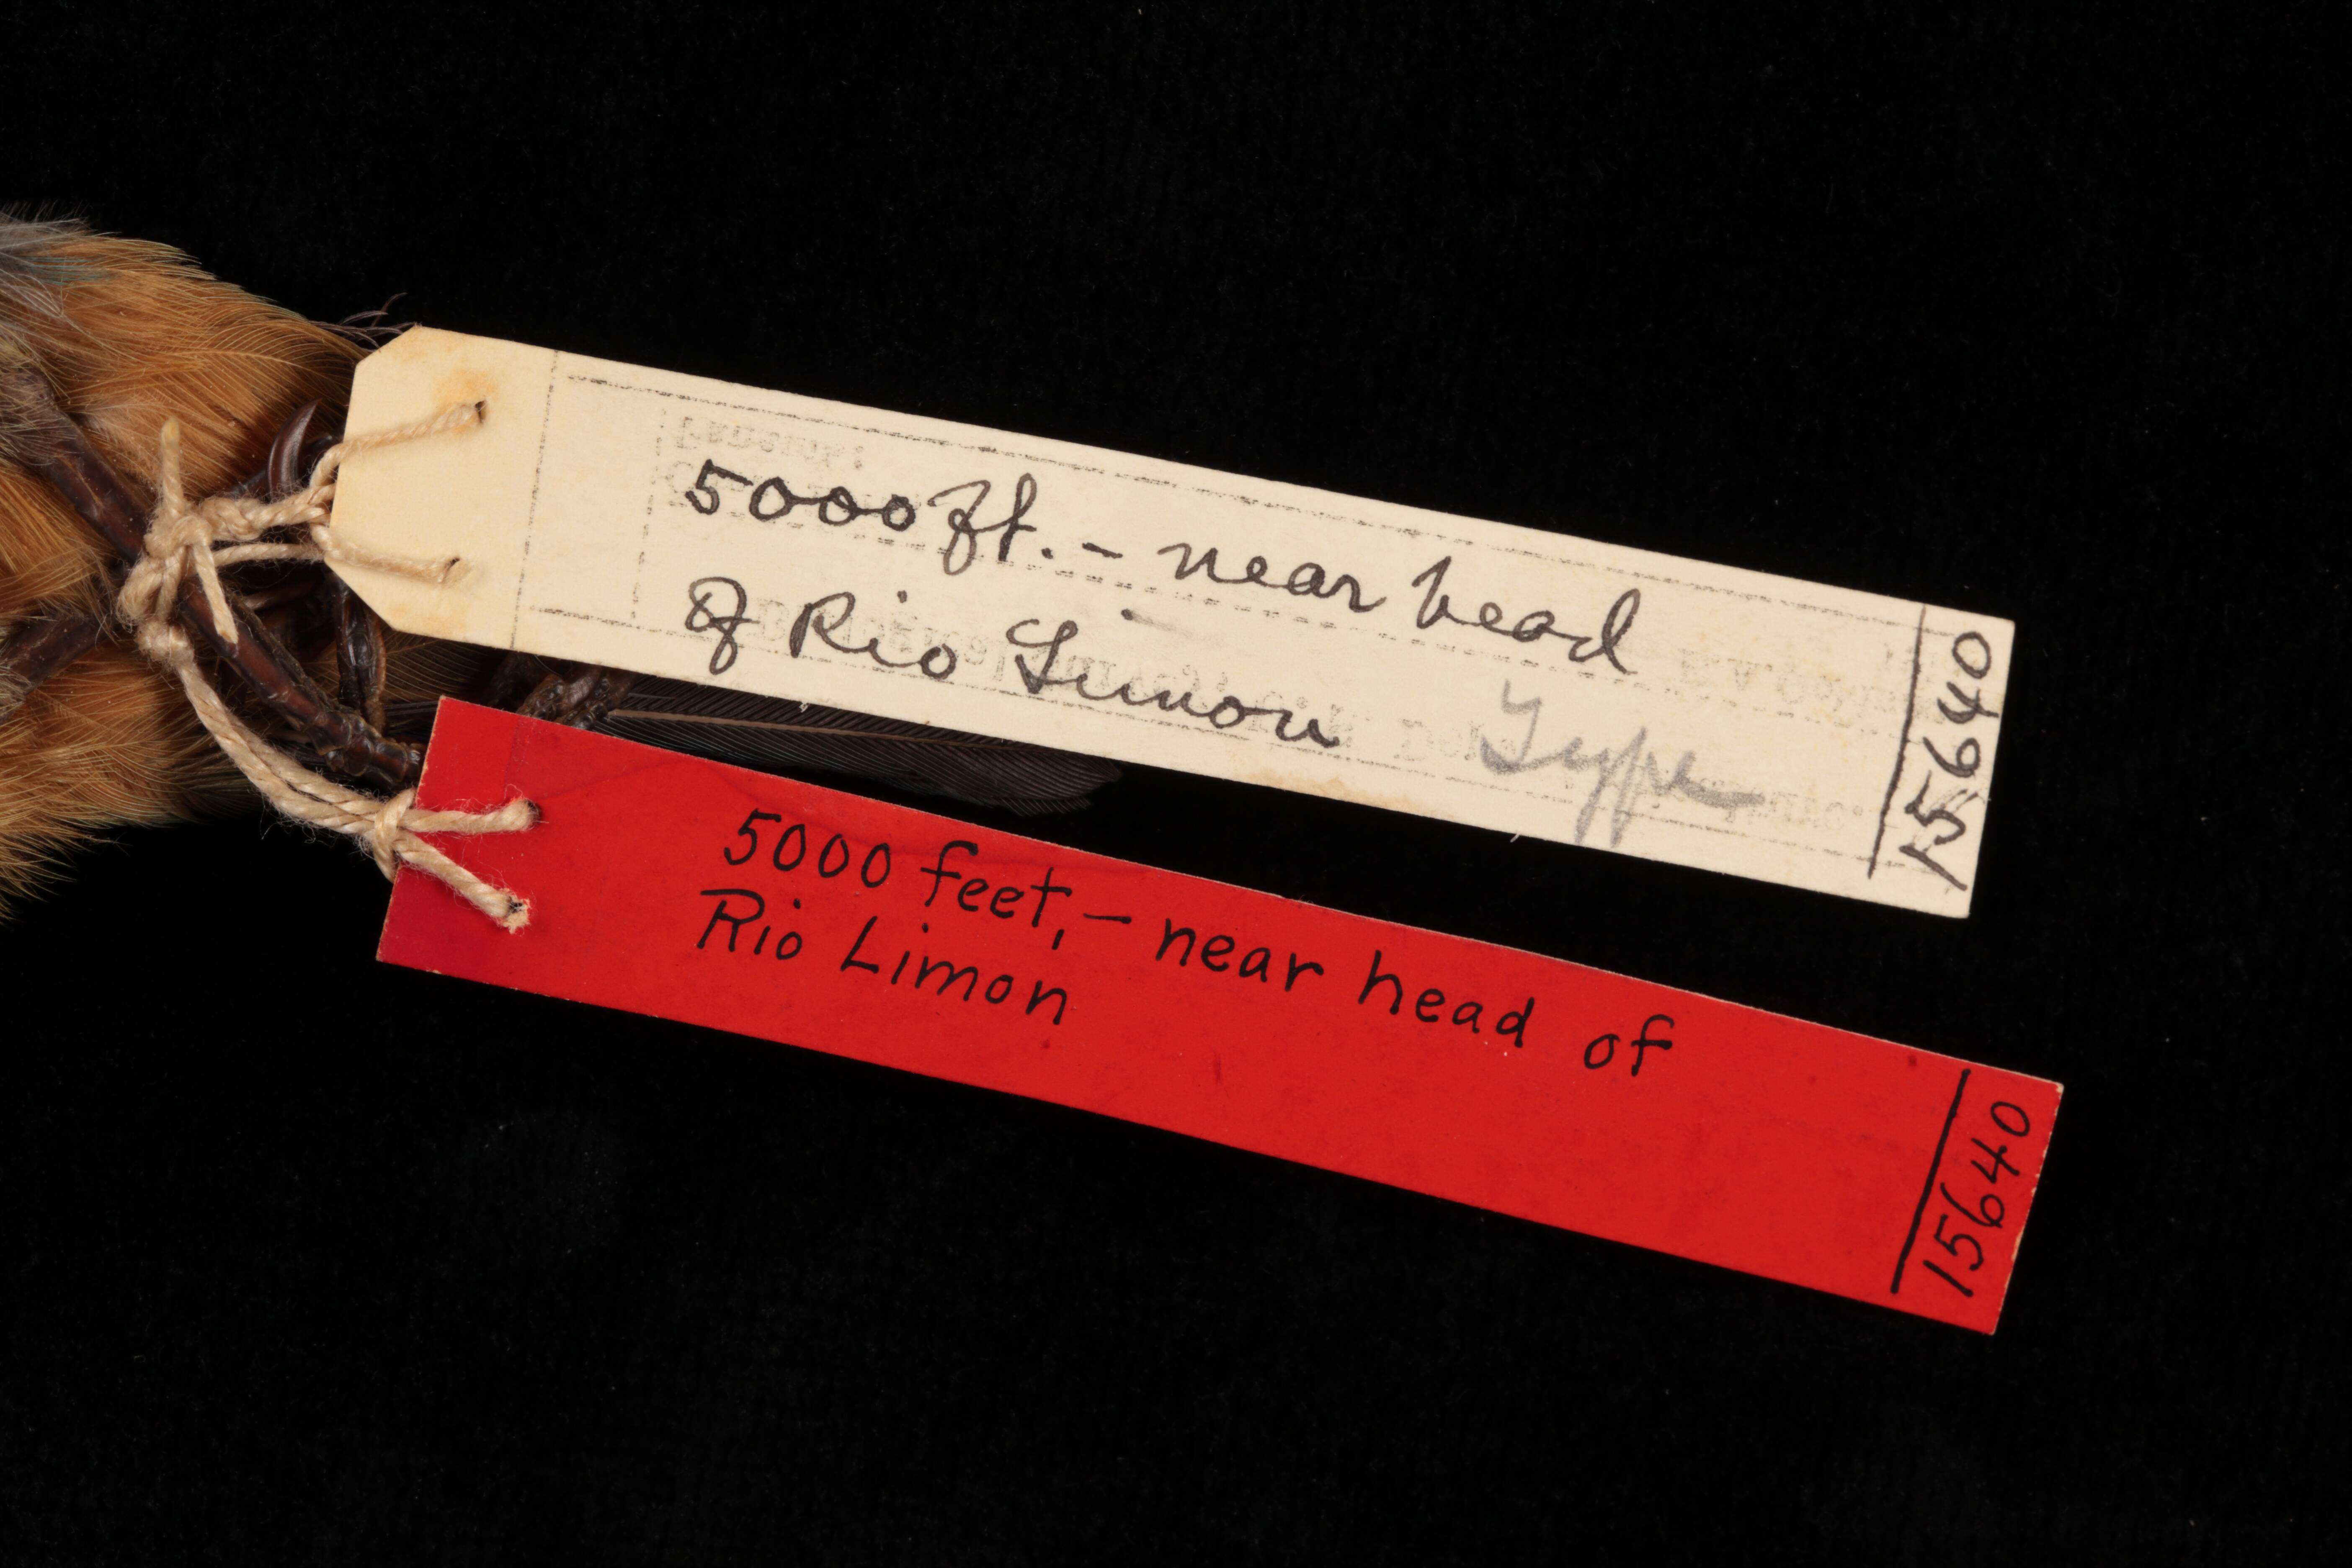 5000 ft. - near head
of Rio Limon
Type
15640
5000 feet, - near head of
Rio Limon
15640